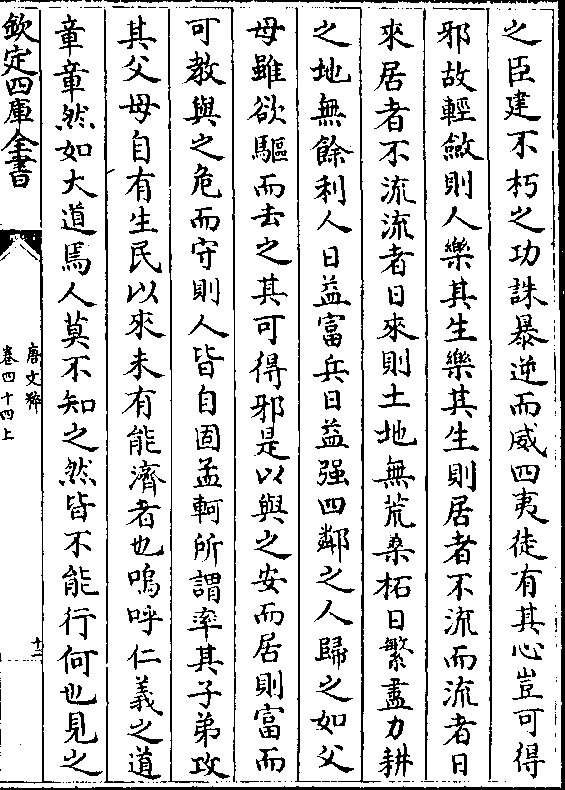 之臣建不朽之功誅暴逆而威四夷徒有其心豈可得
邪故輕斂則人樂其生樂其生則居者不流而流者日
來居者不流流者日來則土地無荒桑柘日繁盡力耕
之地無餘利人日益富兵日益强四鄰之人歸之如父
母雖欲驅而去之其可得邪是以與之安而居則富而
可教與之危而守則人皆自固孟軻所謂率其子弟攻
其父母自有生民以來未有能濟者也嗚呼仁義之道
章章然如大道焉人莫不知之然皆不能行何也見之
欽定四庫全書
唐文粹
卷四十四上
十二